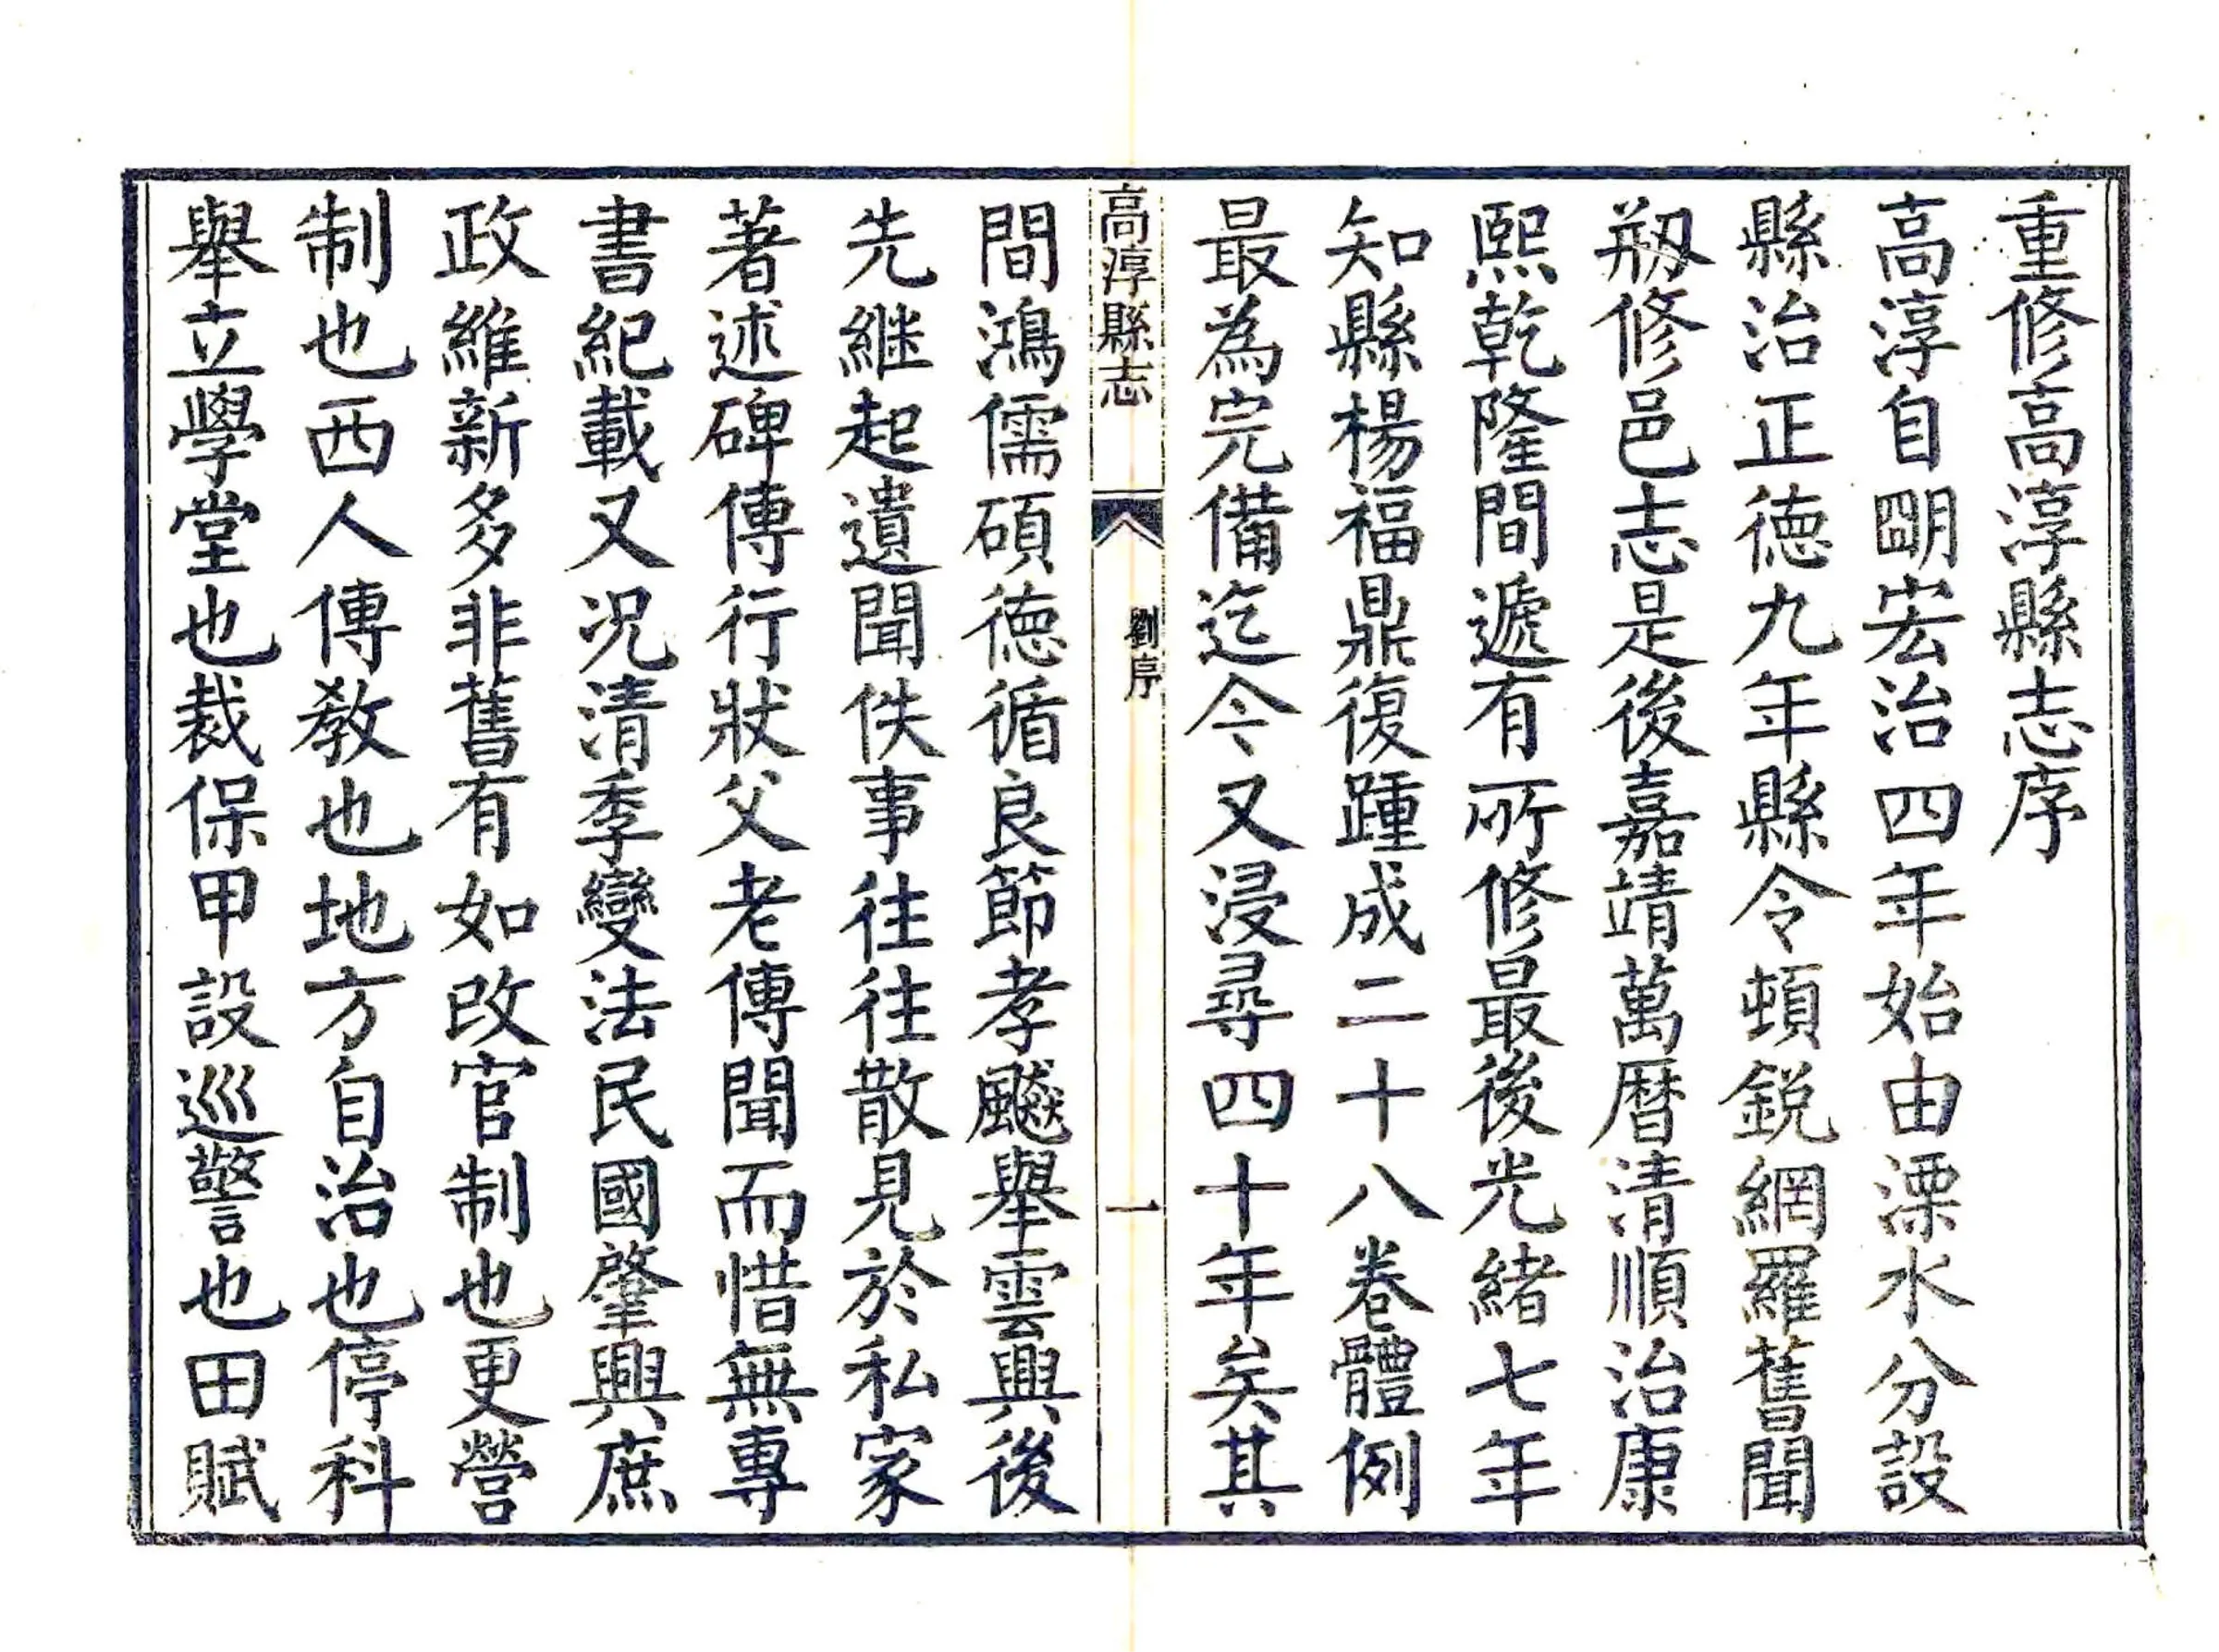 重修高淳縣志序
高淳自朙宏治四年始由溧水分設
縣治正德九年縣令頓銳網羅舊聞
剏修邑志是後嘉靖萬曆清順治康
熙乾隆間遞有所修最後光緒七年
知縣楊福鼎復踵成二十八卷體例
最為完備迄今又浸尋四十年矣其
高淳縣志
劉序
一
間鴻儒碩德循良節孝飇舉雲興後
先繼起遺聞佚事往往散見於私家
著述碑傳行狀父老傳聞而惜無專
書紀載又况清季變法民國肇興庶
政維新多非舊有如改官制也更營
制也西人傳教也地方自治也停科
舉立學堂也裁保甲設巡警也田賦